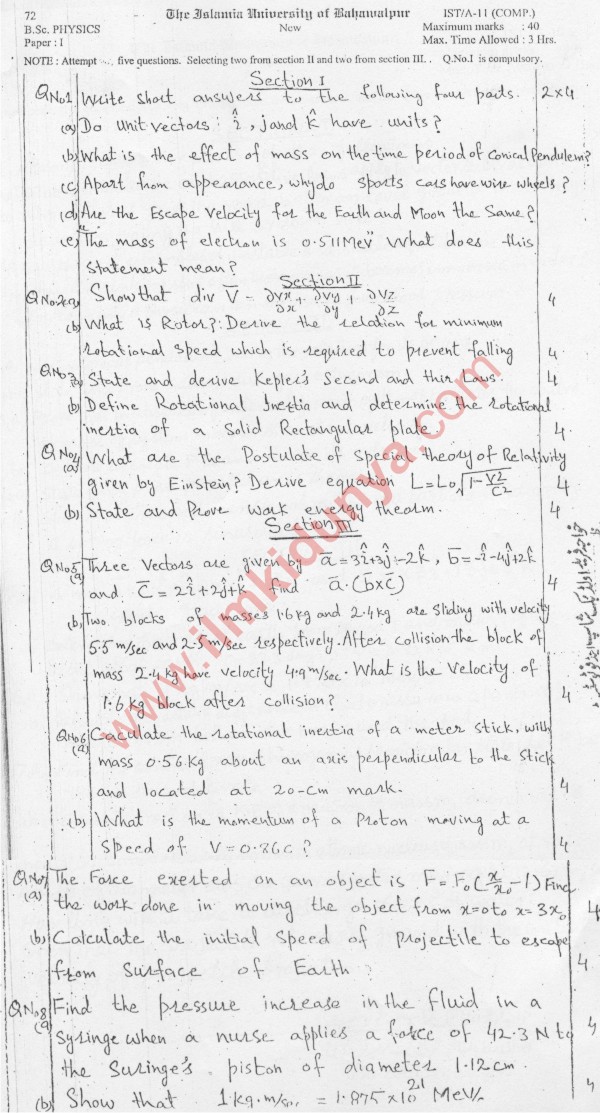 72 The Islamia University of Bahawalpur IST/A-11 (COMP.)
B.Sc. PHYSICS New Maximum marks : 40
Paper : I Max. Time Allowed : 3 Hrs.
NOTE : Attempt five questions. Selecting two from section II and two from section III. . Q.No.I is compulsory.
Section I
Q No1 Write short answers to the following four parts. 2x4
(a) Do unit vectors : î, j and k̂ have units?
(b) What is the effect of mass on the time period of conical pendulem?
(c) Apart from appearance, why do sports cars have wire wheels?
(d) Are the Escape velocity for the Earth and Moon the Same?
(e) The mass of electron is 0.511 Mev" What does this
statement mean?
Section II
Q No2(a) Show that div V̄ = ∂Vx/∂x + ∂Vy/∂y + ∂Vz/∂z 4
(b) What is Rotor?: Derive the relation for minimum
rotational speed which is required to prevent falling 4
Q No3 (a) State and derive Kepler's Second and thir Laws. 4
(b) Define Rotational Inertia and determine the rotational
inertia of a Solid Rectangular plate. 4
Q No4 (a) What are the Postulate of Special theory of Relativity
given by Einstein? Derive equation L=L₀√1-V2/C2 4
(b) State and Prove work energy theorm. 4
Section III
Q No5 (a) Three vectors are given by ā = 3î+3ĵ-2k̂, b̄ = -î-4ĵ+2k̂
and C̄ = 2î+2ĵ+k̂ find ā.(b̄xc̄) 4
(b) Two blocks of masses 1.6kg and 2.4kg are sliding with velocity
5.5 m/sec and 2.5 m/sec respectively. After collision the block of
mass 2.4 kg have velocity 4.9 m/sec. What is the velocity of
1.6 kg block after collision? 4
Q No6 (a) Caculate the rotational inertia of a meter stick, with
mass 0.56 Kg about an axis perpendicular to the stick
and located at 20-cm mark. 4
(b) What is the momentum of a Proton moving at a
speed of V=0.86c? 4
Q No7 (a) The Force exerted on an object is F = F₀(x/x₀ -1) Find
the work done in moving the object from x=0 to x=3x₀ 4
(b) Calculate the initial speed of Projectile to escape
from surface of Earth? 4
Q No8 (a) Find the pressure increase in the fluid in a
syringe when a nurse applies a force of 42.3 N to 4
the Suringe's piston of diameter 1.12 cm.
(b) Show that 1 kg.m/sec = 1.875x10²¹ MeV/c 4
www.ilmkidunya.com